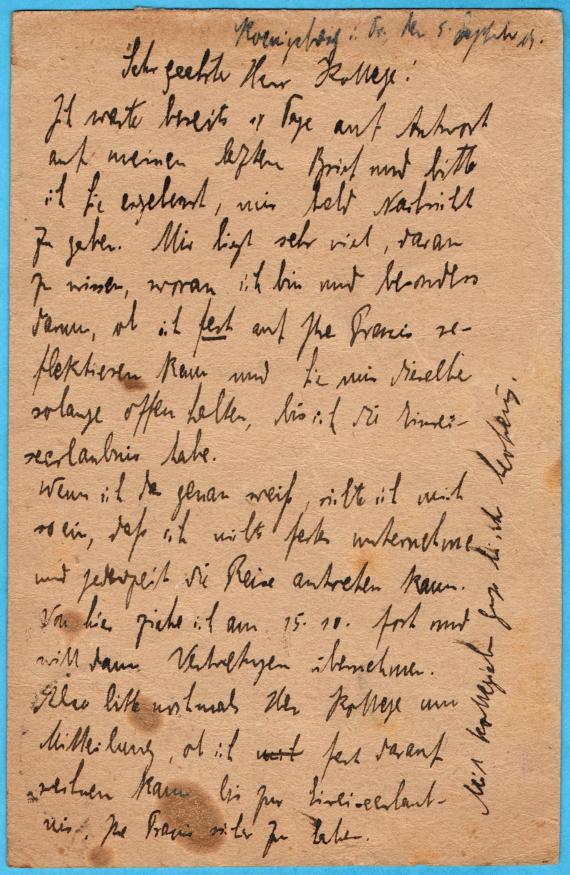 Koenigsberg i. Pr. den 5. Septbr 19.
Sehr geehrter Herr Kollege!
Ich warte bereits 8 Tage auf Antwort
auf meinen letzten Brief und bitte
ich Sie ergebenst, mir bald Nachricht
zu geben. Mir liegt sehr viel, daran
zu wissen, woran ich bin und besonders
daran, ob ich fest auf Ihre Praxis re-
flektieren kann und Sie mir dieselbe
solange offen halten, bis ich die Einrei-
seerlaubnis habe.
Wenn ich das genau weiß, richte ich mich
so ein, daß ich nichts festes unternehme
und jederzeit die Reise antreten kann.
Von hier ziehe ich am 15. 10. fort und
will dann Vertretungen übernehmen.
Also bitte nochmals Herr Kollege um
Mitteilung, ob ich mit fest darauf
rechnen kann bis zur Einreiseerlaub-
nis, Ihre Praxis sicher zu haben.
Mit kollegialen Gruß